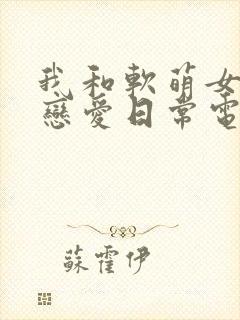 我和軟萌女
戀愛日常電
蘇霍伊